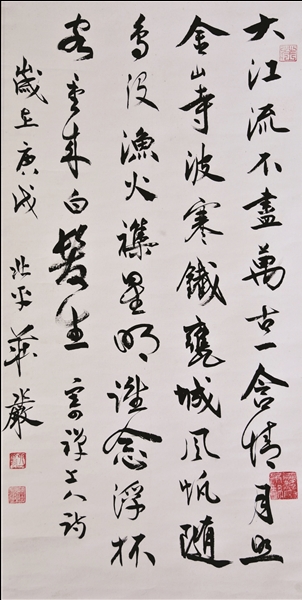 大江流不盡萬古一含情月照
金山寺波寒鐵甕城風帆隨
鳥沒漁火襍星明誰念浮杯
客重來白髮生 寄禪上人詩
歲在庚戌 北平 華嚴